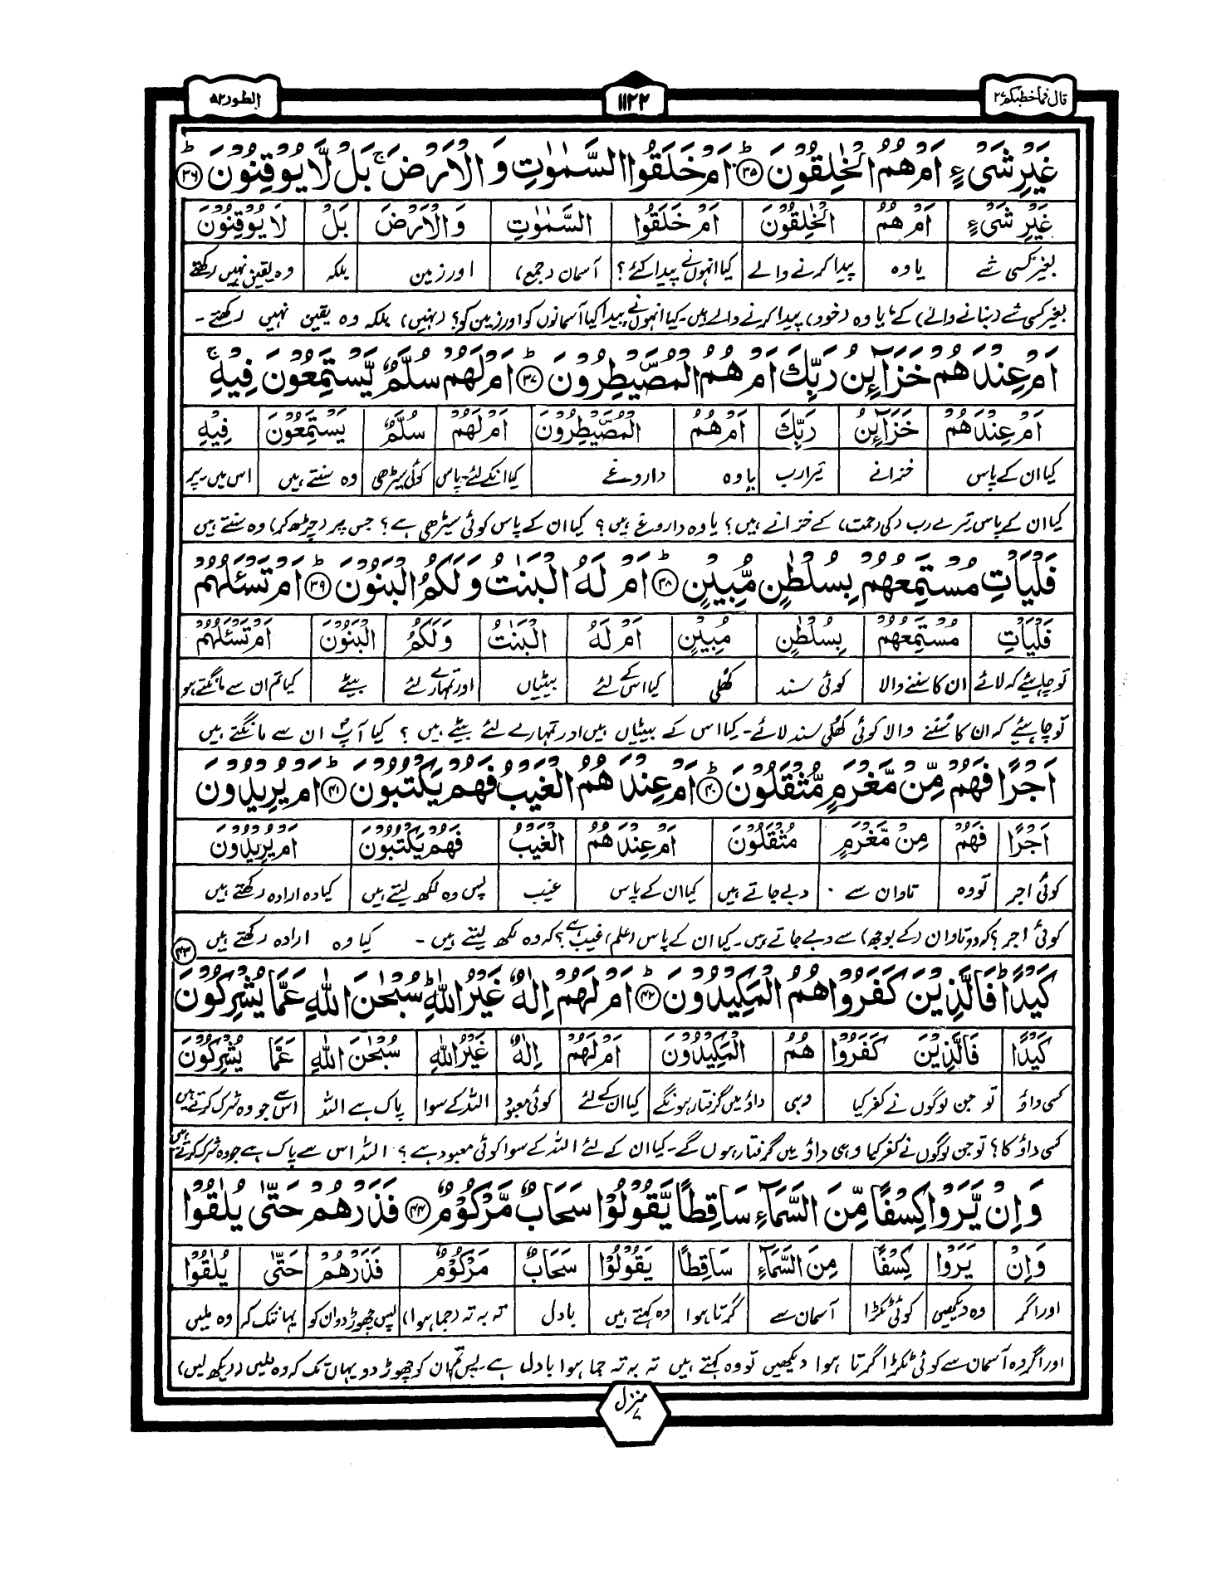 قال فما خطبکم ٢٧ ١١٢٢ الطور ٥٢
غَيْرِ شَيْءٍ اَمْ هُمُ الْخٰلِقُوْنَ ؕ﴿۳۵﴾ اَمْ خَلَقُوا السَّمٰوٰتِ وَ الْاَرْضَ ۚ بَلْ لَّا يُوْقِنُوْنَ ؕ﴿۳۶﴾
غَيْرِ شَيْءٍ اَمْ هُمُ الْخٰلِقُوْنَ اَمْ خَلَقُوا السَّمٰوٰتِ وَالْاَرْضَ بَلْ لَا يُوْقِنُوْنَ
بغیر کسی شے یا وہ پیدا کرنے والے کیا انہوں نے پیدا کئے؟ آسمان (جمع) اور زمین بلکہ وہ یقین نہیں رکھتے
بغیر کسی شے (بنانے والے) کے، یا وہ (خود) پیدا کرنے والے ہیں۔ کیا انہوں نے پیدا کیا آسمانوں کو اور زمین کو؟ (نہیں) بلکہ وہ یقین نہیں رکھتے۔
اَمْ عِنْدَهُمْ خَزَآئِنُ رَبِّكَ اَمْ هُمُ الْمُصَۜيْطِرُوْنَ ؕ﴿۳۷﴾ اَمْ لَهُمْ سُلَّمٌ يَّسْتَمِعُوْنَ فِيْهِ ۚ
اَمْ عِنْدَهُمْ خَزَآئِنُ رَبِّكَ اَمْ هُمُ الْمُصَۜيْطِرُوْنَ اَمْ لَهُمْ سُلَّمٌ يَسْتَمِعُوْنَ فِيْهِ
کیا ان کے پاس خزانے تیرا رب یا وہ داروغے کیا انکے لئے۔پاس کوئی سیڑھی وہ سنتے ہیں اس میں۔پر
کیا ان کے پاس تیرے رب (کی رحمت) کے خزانے ہیں؟ یا وہ داروغے ہیں؟ کیا ان کے پاس کوئی سیڑھی ہے؟ جس پر (چڑھ کر) وہ سنتے ہیں
فَلْيَاْتِ مُسْتَمِعُهُمْ بِسُلْطٰنٍ مُّبِيْنٍ ؕ﴿۳۸﴾ اَمْ لَهُ الْبَنٰتُ وَلَكُمُ الْبَنُوْنَ ؕ﴿۳۹﴾ اَمْ تَسْـَٔلُهُمْ
فَلْيَاْتِ مُسْتَمِعُهُمْ بِسُلْطٰنٍ مُبِيْنٍ اَمْ لَهُ الْبَنٰتُ وَلَكُمُ الْبَنُوْنَ اَمْ تَسْـَٔلُهُمْ
تو چاہیئے کہ لائے ان کا سننے والا کوئی سند کھلی کیا اس کے لئے بیٹیاں اور تمہارے لئے بیٹے کیا تم ان سے مانگتے ہو
تو چاہیئے کہ ان کا سننے والا کوئی کھلی سند لائے۔ کیا اس کے بیٹیاں ہیں اور تمہارے لئے بیٹے ہیں؟ کیا آپؐ ان سے مانگتے ہیں
اَجْرًا فَهُمْ مِّنْ مَّغْرَمٍ مُّثْقَلُوْنَ ؕ﴿۴۰﴾ اَمْ عِنْدَهُمُ الْغَيْبُ فَهُمْ يَكْتُبُوْنَ ؕ﴿۴۱﴾ اَمْ يُرِيْدُوْنَ
اَجْرًا فَهُمْ مِنْ مَغْرَمٍ مُثْقَلُوْنَ اَمْ عِنْدَهُمُ الْغَيْبُ فَهُمْ يَكْتُبُوْنَ اَمْ يُرِيْدُوْنَ
کوئی اجر تو وہ تاوان سے دبے جاتے ہیں کیا ان کے پاس غیب پس وہ لکھ لیتے ہیں کیا وہ ارادہ رکھتے ہیں
کوئی اجر؟ کہ وہ تاوان (کے بوجھ) سے دبے جاتے ہیں۔ کیا ان کے پاس (علم) غیب ہے؟ کہ وہ لکھ لیتے ہیں۔ کیا وہ ارادہ رکھتے ہیں
كَيْدًا ؕ فَالَّذِيْنَ كَفَرُوْا هُمُ الْمَكِيْدُوْنَ ؕ﴿۴۲﴾ اَمْ لَهُمْ اِلٰهٌ غَيْرُ اللّٰهِ ؕ سُبْحٰنَ اللّٰهِ عَمَّا يُشْرِكُوْنَ ﴿۴۳﴾
كَيْدًا فَالَّذِيْنَ كَفَرُوْا هُمُ الْمَكِيْدُوْنَ اَمْ لَهُمْ اِلٰهٌ غَيْرُ اللّٰهِ سُبْحٰنَ اللّٰهِ عَمَّا يُشْرِكُوْنَ
کسی داؤ تو جن لوگوں نے کفر کیا وہی داؤ میں گرفتار ہونگے کیا ان کے لئے کوئی معبود اللہ کے سوا پاک ہے اللہ اس سے جو وہ شرک کرتے ہیں
کسی داؤ کا؟ تو جن لوگوں نے کفر کیا وہی داؤ میں گرفتار ہوں گے۔ کیا ان کے لئے اللہ کے سوا کوئی معبود ہے؟ اللہ اس سے پاک ہے جو وہ شرک کرتے ہیں
وَاِنْ يَّرَوْا كِسْفًا مِّنَ السَّمَآءِ سَاقِطًا يَّقُوْلُوْا سَحَابٌ مَّرْكُوْمٌ ﴿۴۴﴾ فَذَرْهُمْ حَتّٰى يُلٰقُوْا
وَاِنْ يَرَوْا كِسْفًا مِنَ السَّمَآءِ سَاقِطًا يَقُوْلُوْا سَحَابٌ مَرْكُوْمٌ فَذَرْهُمْ حَتّٰى يُلٰقُوْا
اور اگر وہ دیکھیں کوئی ٹکڑا آسمان سے گرتا ہوا وہ کہتے ہیں بادل تہ بہ تہ (جما ہوا) پس چھوڑ دو ان کو یہانتک کہ وہ ملیں
اور اگر وہ آسمان سے کوئی ٹکڑا گرتا ہوا دیکھیں تو وہ کہتے ہیں تہ بہ تہ جما ہوا بادل ہے۔ پس تم ان کو چھوڑ دو یہاں تک کہ وہ ملیں (دیکھ لیں)
منزل ٧